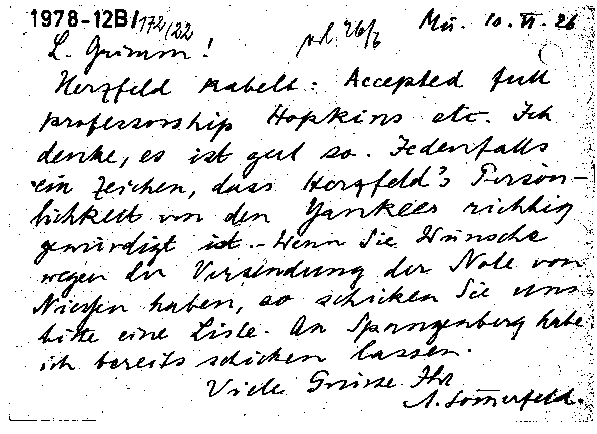 1978-12B/172/22
Mü. 10. VI. 26
L. Grimm!
Herzfeld kabelt: Accepted full
professorship Hopkins etc. Ich
denke, es ist gut so. Jedenfalls
ein Zeichen, dass Herzfeld's Persön-
lichkeit von den Yankees richtig
gewürdigt ist. - Wenn Sie Wünsche
wegen der Versendung der Note von
haben, so schicken Sie uns
bitte eine Liste. An Spangenberg habe
ich bereits schicken lassen.
Viele Grüsse Ihr
A. Sommerfeld.